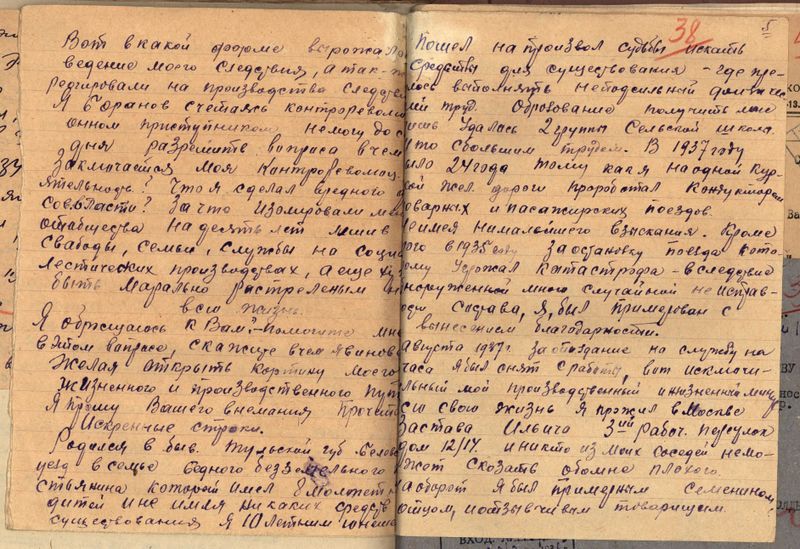 Вот в какой форме вырожало
ведение моего следствия, а так-же
редгировали на производства следств
Я Боранов счетаясь контрреволю
онном приступником немогу до с
дня разрешить вопроса в чем
заключается моя контрреволюц
ятельнодь? Что я сделал вредного
Соввласти? За что изолировали ме
отабщества на десять лет лишив
свабоды, семьи, службы на социа
лестических производствах, а еще
быть марально растреленым
всю жизнь.
Я обращаюсь к Вам! – помогите мне
в этом вапросе, скажите в чем я винов
Желая открыть картину моего
жизненного и производственного пути
Я прошу Вашего внемания прочесть
Искренные строки.
Родился в быв. Тульский губ. Белев
уезд в семье бедного беззе
стьянина которой имел 8 молжет
дитей и не имея никаких средств
существования я 10 летним юноше
38
5
пошел на произвол судьбы искать
средствы для существования – где пре
лось выполнять непосильный физиче
кий труд. Образование получить мне
лишь удалась 2 группы Сельской школа
и то с большим трудем. В 1937 году
было 24 года тому как я на одной Кур
кой жел. дороги проработал Кондуктором
товарных и пасажирских поездов.
не имея ни малейшего взыскания. Кроме
того в 1935 году за остановку поезда кото-
рому угрожал катастрофа – вследствие
мною случайной не исправ-
ности состава, я, был примерован с
вынесением благодарности.
Августа 1947г. за опоздание на службу на
часа я был снят с работы, вот искмачи-
льный мой производственный и жизненный
всю свою жизнь я прожил в Москве
Застава Ильича 3ий Рабоч. переулок
дом 12/14. и никто из моих соседей немо-
жет сказать обомне плохого.
наоборот я был примерным семенином,
отцом, и отзывчивым товарищем.